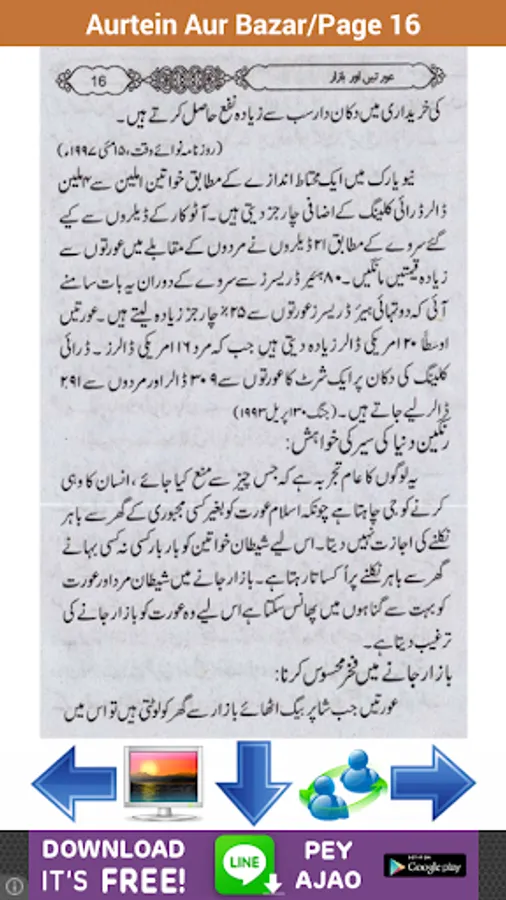 Aurtein Aur Bazar/Page 16
16
عورتیں اور بازار
کی خریداری میں دکان دار سب سے زیادہ نفع حاصل کرتے ہیں۔
(روزنامہ نوائے وقت، ۱۵ مئی ۱۹۹۷ء)
نیویارک میں ایک محتاط اندازے کے مطابق خواتین ۱ملین سے ۴ ملین
ڈالر ڈرائی کلیننگ کے اضافی چارجز دیتی ہیں۔ آٹو کار کے ڈیلروں سے کیے
گئے سروے کے مطابق ۲۱ ڈیلروں نے مردوں کے مقابلے میں عورتوں سے
زیادہ قیمتیں مانگیں۔ ۸۰ ہیئر ڈریسرز سے سروے کے دوران یہ بات سامنے
آئی کہ دو تہائی ہیئر ڈریسرز عورتوں سے ۲۵٪ چارجز زیادہ لیتے ہیں۔ عورتیں
اوسطاً ۲۰ امریکی ڈالر زیادہ دیتی ہیں جب کہ مرد ۱۶ امریکی ڈالرز۔ ڈرائی
کلیننگ کی دکان پر ایک شرٹ کا عورتوں سے ۳۰۹ ڈالر اور مردوں سے ۲۹۱
ڈالر لیے جاتے ہیں۔ (جنگ ۳۰ اپریل ۱۹۹۳)
رنگین دنیا کی سیر کی خواہش:
یہ لوگوں کا عام تجربہ ہے کہ جس چیز سے منع کیا جائے، انسان کا وہی
کرنے کو جی چاہتا ہے چونکہ اسلام عورت کو بغیر کسی مجبوری کے گھر سے باہر
نکلنے کی اجازت نہیں دیتا۔ اس لیے شیطان خواتین کو بار بار کسی نہ کسی بہانے
گھر سے باہر نکلنے پر اُکساتا رہتا ہے۔ بازار جانے میں شیطان مرد اور عورت
کو بہت سے گناہوں میں پھانس سکتا ہے اس لیے وہ عورت کو بازار جانے کی
ترغیب دیتا ہے۔
بازار جانے میں فخر محسوس کرنا:
عورتیں جب شاپر بیگ اٹھائے بازار سے گھر کو لوٹتی ہیں تو اس میں
DOWNLOAD
IT'S FREE!
LINE
PEY
AJAO
GET IT ON
Google play